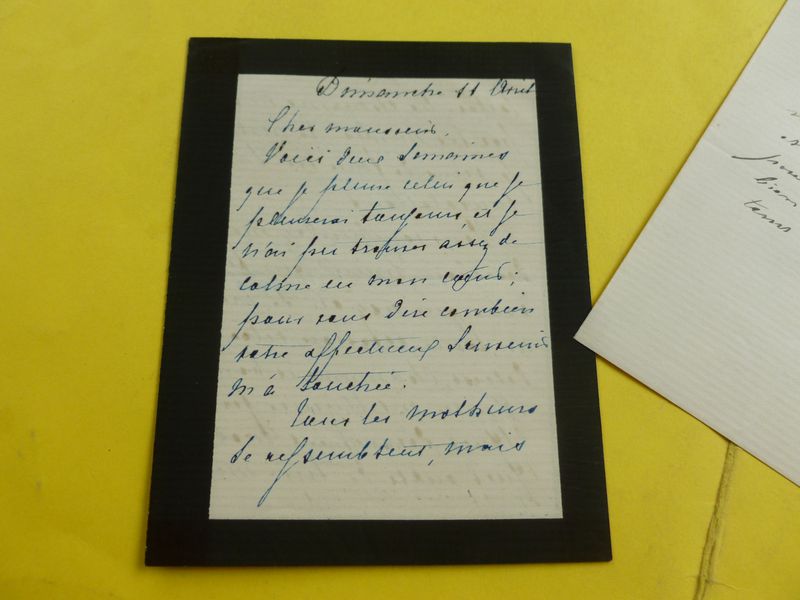 Dimanche 11 Avril
Cher monsieur,
Voici deux Semaines
que je pleure celui que je
pleurerai toujours, et je
n'ai pu trouver assez de
calme en mon cœur,
pour vous dire combien
votre affectueux Souvenir
m'a touchée.
Tous les malheurs
se ressemblent, mais
bien